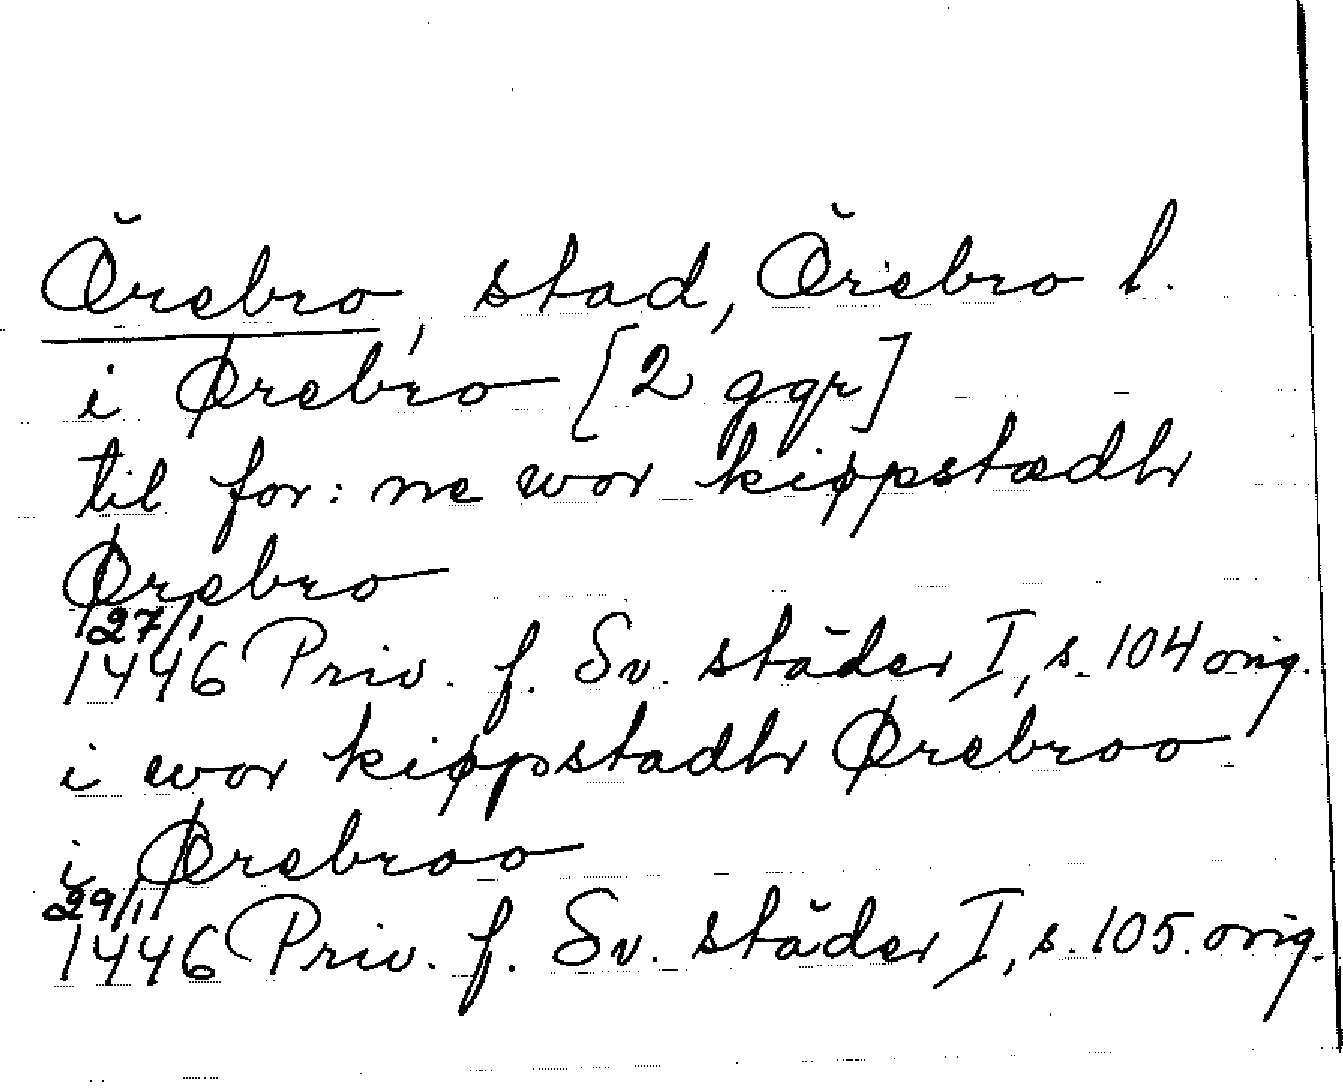 Örebro, stad, Örebro l.
i Ørebro [2 ggr]
til for: ne wor kiøpstædhr
Ørebro
27/1
1446 Priv. f. Sv. städer I, s. 104 orig.
i wor kiøpstadhr Ørebroo
i Ørebroo
29/1
1446 Priv. f. Sv. städer I, s. 105. orig.